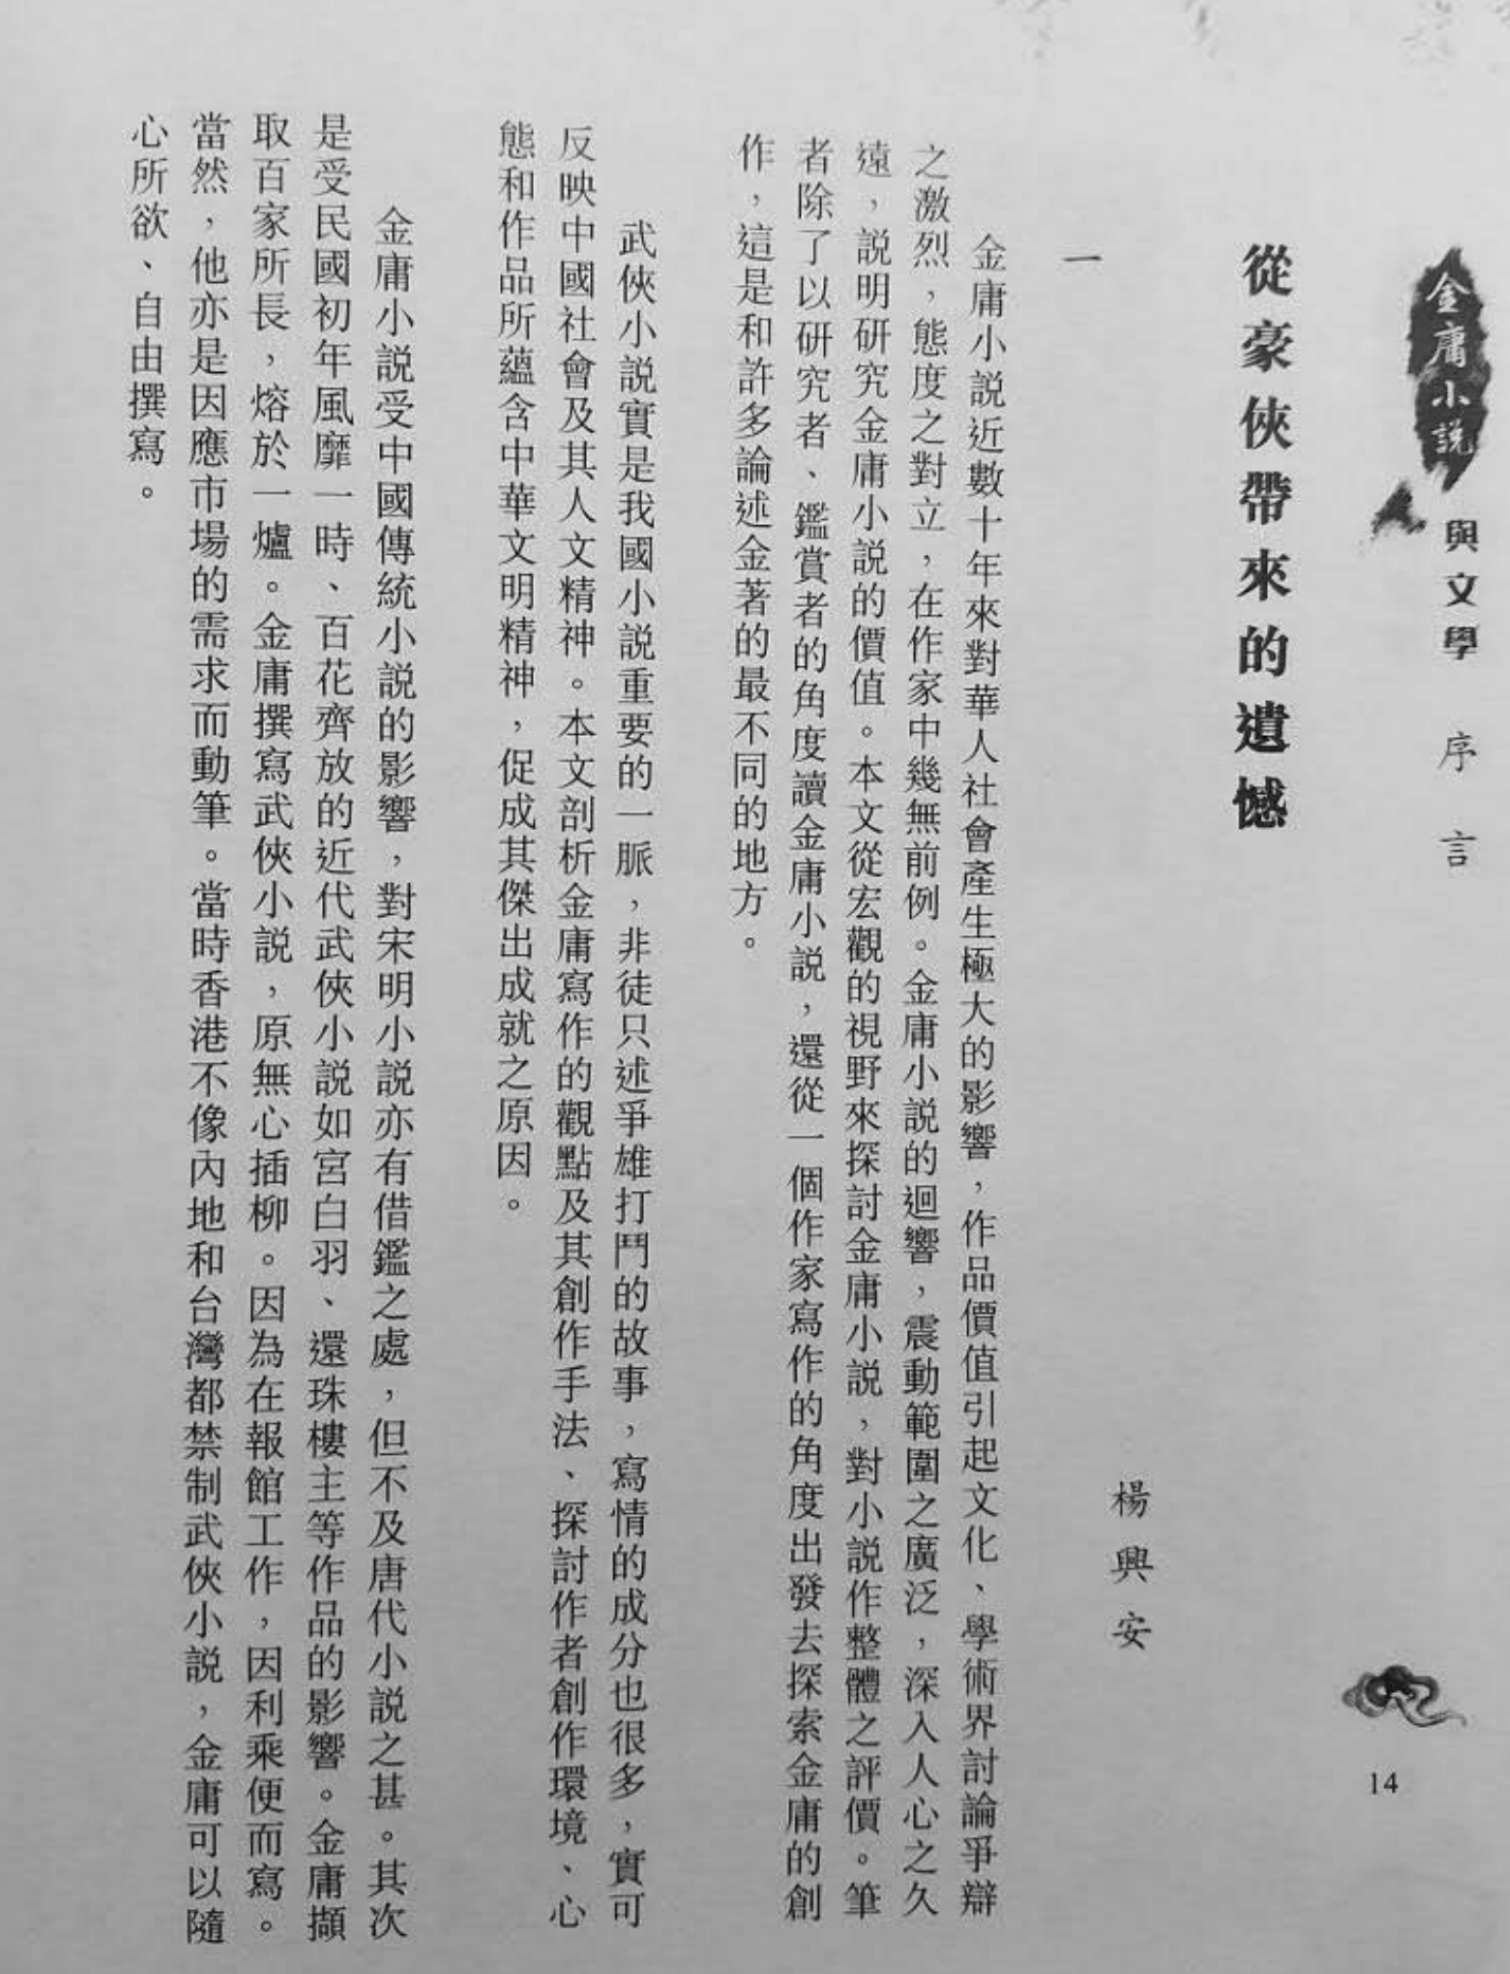 金庸小説
與文學 序言
從豪俠帶來的遺憾
楊興安
一
金庸小説近數十年來對華人社會產生極大的影響，作品價值引起文化、學術界討論爭辯
之激烈，態度之對立，在作家中幾無前例。金庸小説的迴響，震動範圍之廣泛，深入人心之久
遠，説明研究金庸小説的價值。本文從宏觀的視野來探討金庸小説，對小説作整體之評價。筆
者除了以研究者、鑑賞者的角度讀金庸小説，還從一個作家寫作的角度出發去探索金庸的創
作，這是和許多論述金著的最不同的地方。
武俠小説實是我國小説重要的一脈，非徒只述爭雄打鬥的故事，寫情的成分也很多，實可
反映中國社會及其人文精神。本文剖析金庸寫作的觀點及其創作手法、探討作者創作環境、心
態和作品所蘊含中華文明精神，促成其傑出成就之原因。
金庸小説受中國傳統小説的影響，對宋明小説亦有借鑑之處，但不及唐代小説之甚。其次
是受民國初年風靡一時、百花齊放的近代武俠小説如宮白羽、還珠樓主等作品的影響。金庸擷
取百家所長，熔於一爐。金庸撰寫武俠小説，原無心插柳。因為在報館工作，因利乘便而寫。
當然，他亦是因應市場的需求而動筆。當時香港不像內地和台灣都禁制武俠小説，金庸可以隨
心所欲、自由撰寫。
14